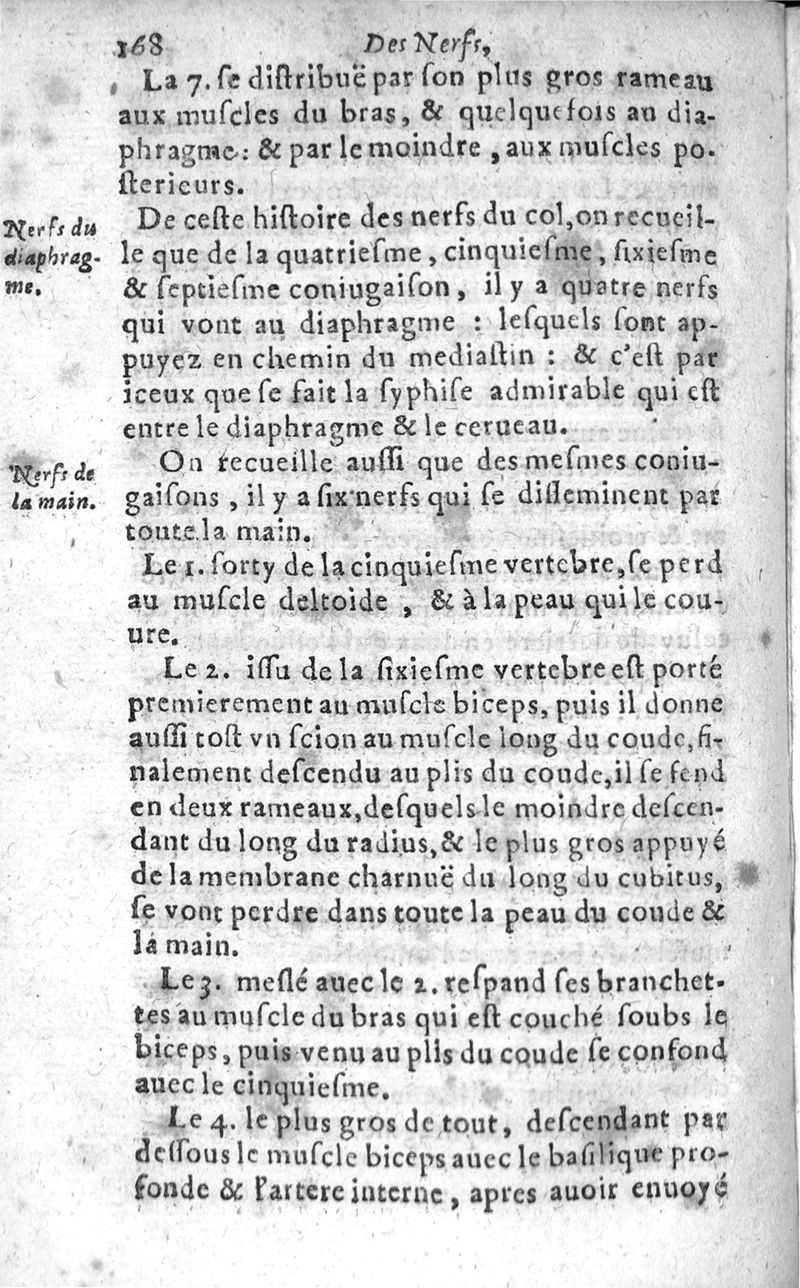 168
Des Nerfs,
La 7. ſe diſtribuë par ſon plus gros rameau
aux muſcles du bras, & quelquefois au dia-
phragme: & par le moindre, aux muſcles po-
ſterieurs.
Nerfs du
diaphrag-
me.
De ceſte hiſtoire des nerfs du col, on recueil-
le que de la quatrieſme, cinquieſme, ſixieſme
& ſeptieſme coniugaiſon, il y a quatre nerfs
qui vont au diaphragme : leſquels ſont ap-
puyez en chemin du mediaſtin : & c'eſt par
iceux que ſe fait la ſyphiſe admirable qui eſt
entre le diaphragme & le cerueau.
Nerfs de
la main.
On recueille auſſi que des meſmes coniu-
gaiſons, il y a ſix nerfs qui ſe diſſeminent par
toute la main.
Le 1. ſorty de la cinquieſme vertebre, ſe perd
au muſcle deltoide, & à la peau qui le cou-
ure.
Le 2. iſſu de la ſixieſme vertebre eſt porté
premierement au muſcle biceps, puis il donne
auſſi toſt vn ſcion au muſcle long du coude, fi-
nalement deſcendu au plis du coude, il ſe fend
en deux rameaux, deſquels le moindre deſcen-
dant du long du radius, & le plus gros appuyé
de la membrane charnuë du long du cubitus,
ſe vont perdre dans toute la peau du coude &
la main.
Le 3. meſlé auec le 2. reſpand ſes branchet-
tes au muſcle du bras qui eſt couché ſoubs le
biceps, puis venu au plis du coude ſe confond
auec le cinquieſme.
Le 4. le plus gros de tout, deſcendant par
deſſous le muſcle biceps auec le baſilique pro-
fonde & l'artere interne, apres auoir enuoyé